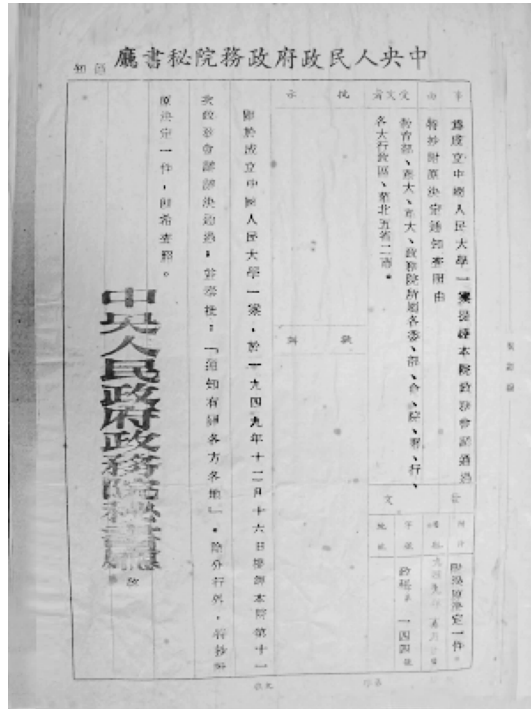 中央人民政府政務院秘書廳
通知
事由
為成立中國人民大學一案業經本院政務會議通過
特抄附原決定通知查照由
受文者
教育部、人大、政務院所屬各委、部、會、院、署、行、
各大行政區、華北五省二市。
批示
擬辦
發文
附件
附抄原決定一件。
字號
政秘字 一四四號
關於成立中國人民大學一案，於一九四九年十二月十六日經本院第十一
次政務會議議決通過，並奉批：「通知有關各方各地」。除分行外，特抄附
原決定一件，即希查照。
中央人民政府政務院秘書廳